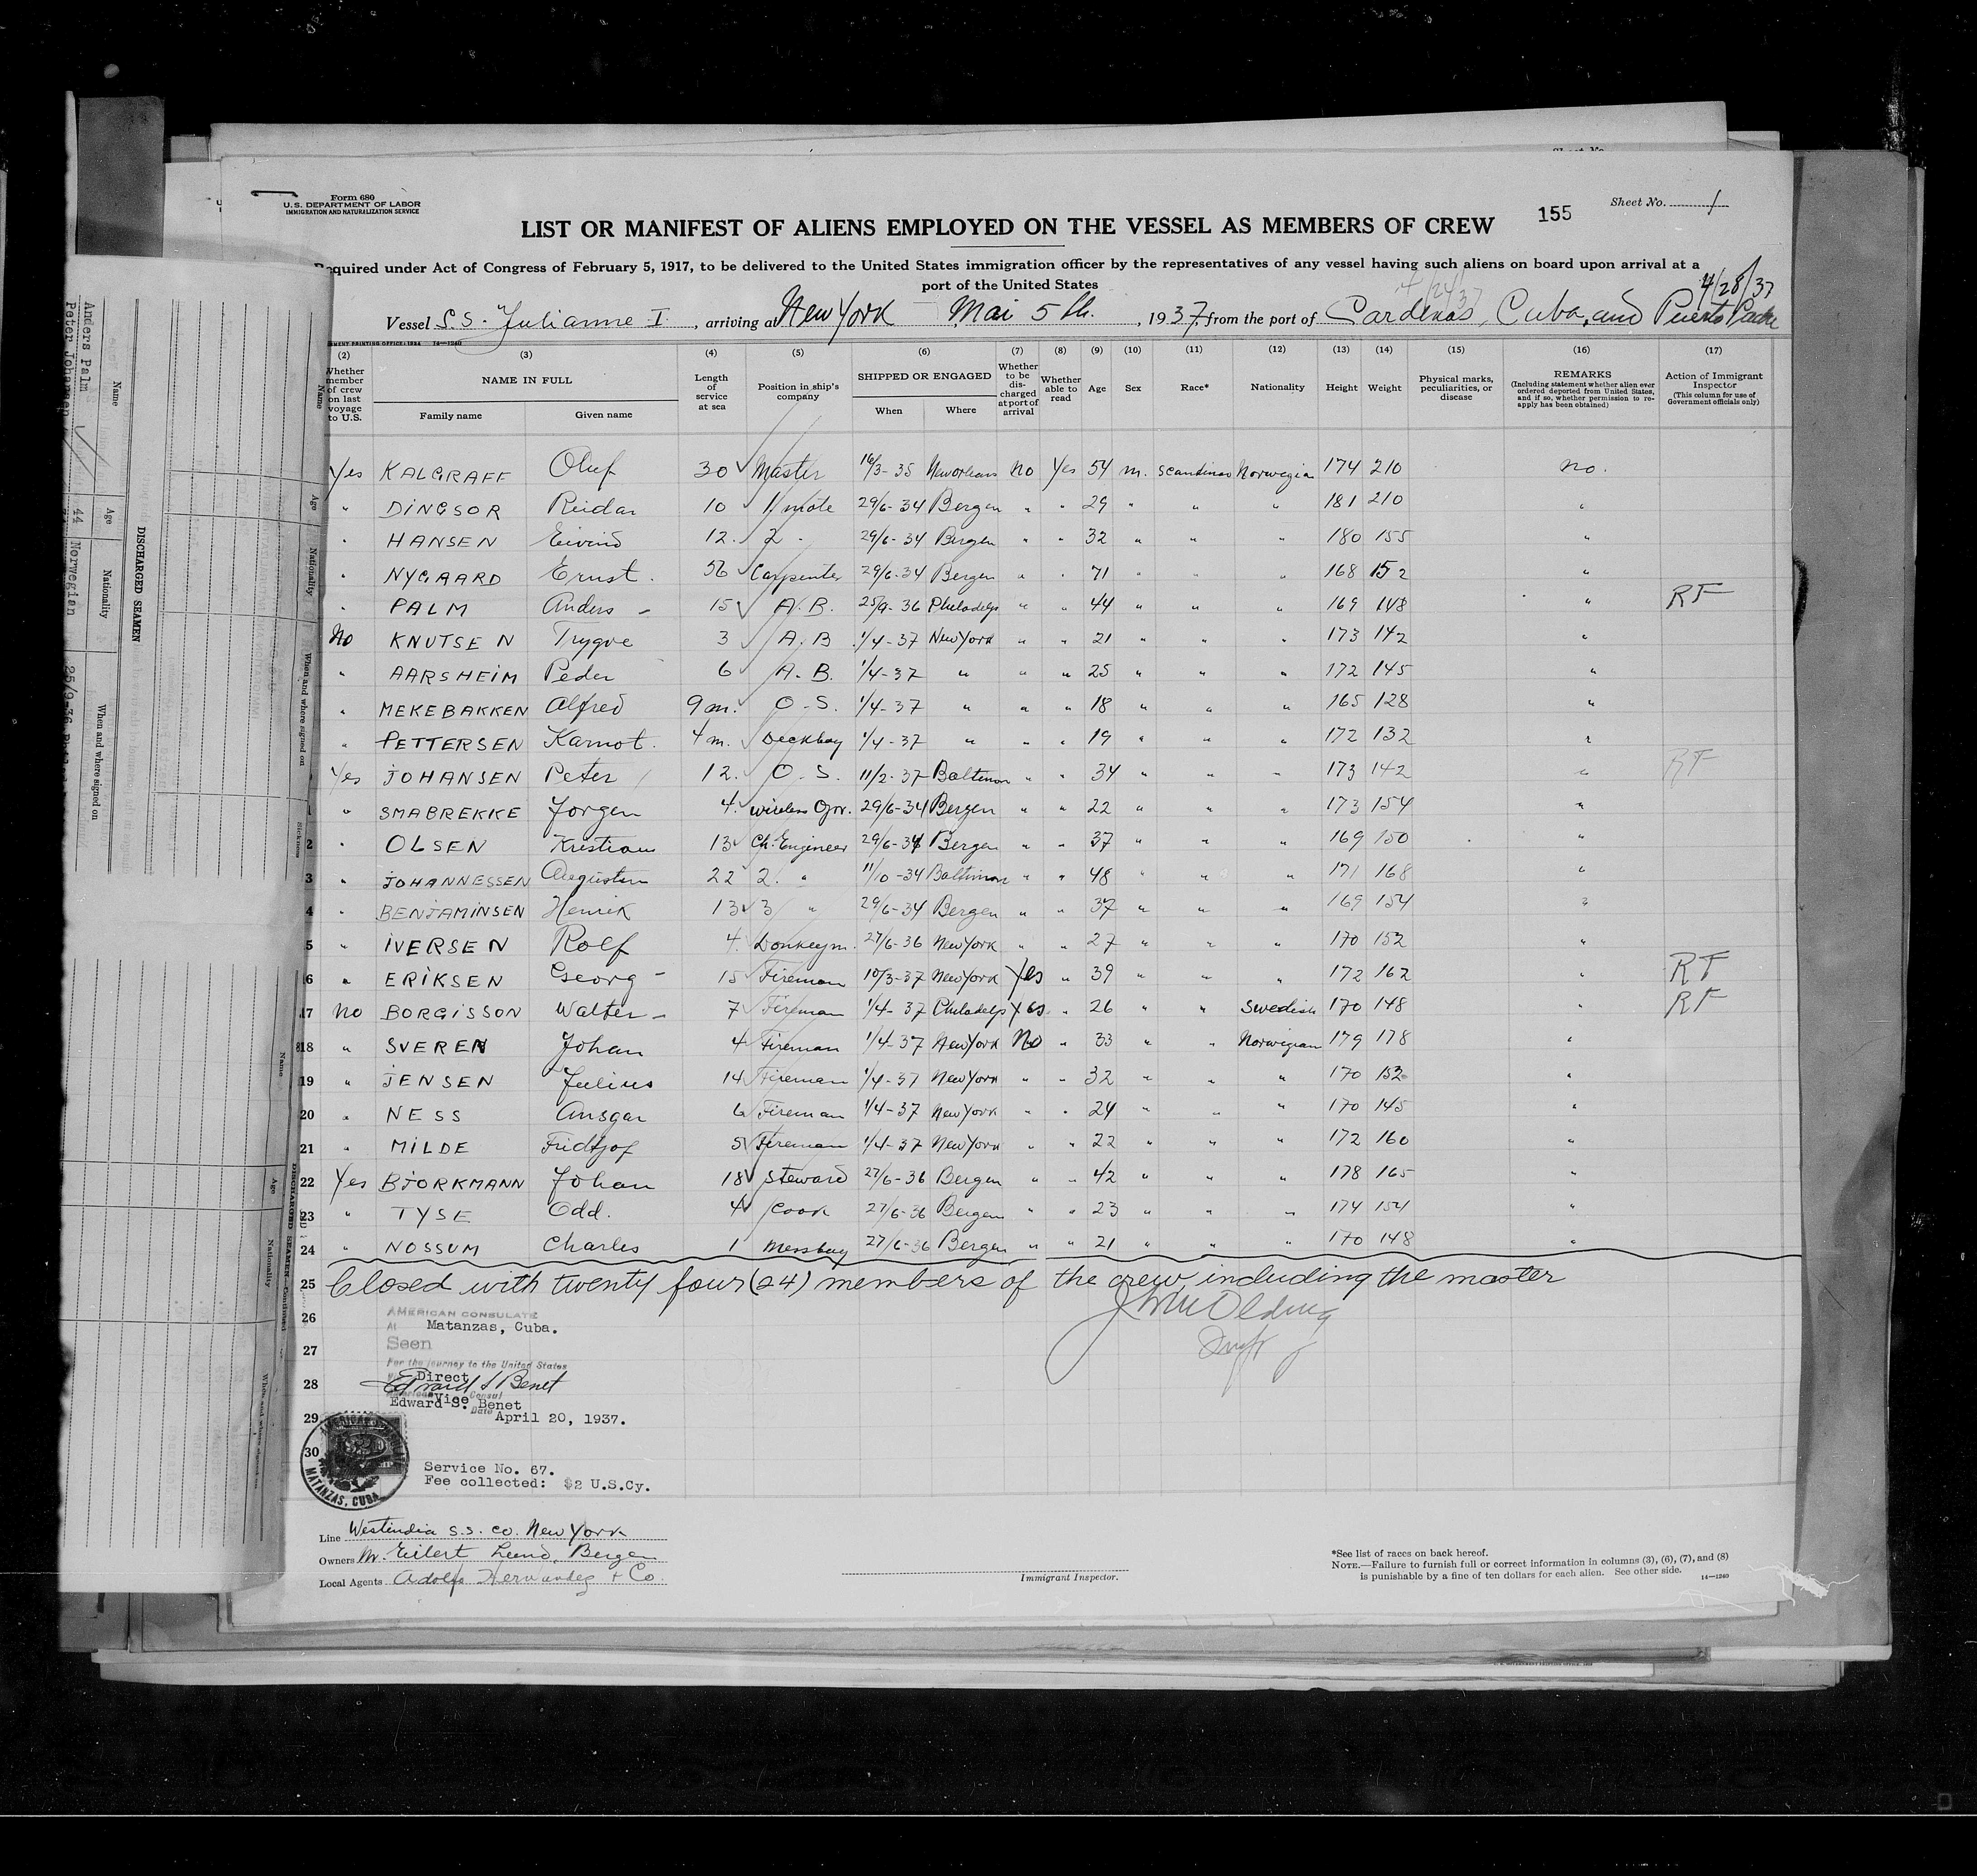 Sheet No. 1
Form 680
U.S. DEPARTMENT OF LABOR
IMMIGRATION AND NATURALIZATION SERVICE
155
LIST OR MANIFEST OF ALIENS EMPLOYED ON THE VESSEL AS MEMBERS OF CREW
Required under Act of Congress of February 5, 1917, to be delivered to the United States immigration officer by the representatives of any vessel having such aliens on board upon arrival at a
port of the United States
4/24/37 4/28/37
Vessel S.S. Julianne I, arriving at New York Mai 5th, 1937, from the port of Cardenas, Cuba, and Puerto Padre
(2) (3) (4) (5) (6) (7) (8) (9) (10) (11) (12) (13) (14) (15) (16) (17)
Whether member of crew on last voyage to U.S. NAME IN FULL Family name Given name Length of service at sea Position in ship's company SHIPPED OR ENGAGED When Where Whether to be discharged at port of arrival Whether able to read Age Sex Race* Nationality Height Weight Physical marks, peculiarities, or disease REMARKS (Including statement whether alien ever ordered deported from United States, and if so, whether permission to reapply has been obtained) Action of Immigrant Inspector (This column for use of Government officials only)
Yes KALGRAFF Oluf 30 Master 16/3-35 New Orleans No Yes 54 m. Scandinav Norwegian 174 210 no.
" DINGSOR Reidar 10 1/mate 29/6-34 Bergen " " 29 " " " 181 210 "
" HANSEN Eivind 12. 2 " 29/6-34 Bergen " " 32 " " " 180 155 "
" NYGAARD Ernst. 56 Carpenter 29/6-34 Bergen " " 71 " " " 168 152 "
" PALM Anders - 15 A.B. 25/9-36 Philadelp " " 44 " " " 169 148 " RF
No KNUTSEN Trygve 3 A.B 1/4-37 New York " " 21 " " " 173 142 "
" AARSHEIM Peder 6 A.B. 1/4-37 " " " 25 " " " 172 145 "
" MEKEBAKKEN Alfred 9 m. O.S. 1/4-37 " " " 18 " " " 165 128 "
" PETTERSEN Karnot. 4 m. Deckboy 1/4-37 " " " 19 " " " 172 132 "
Yes JOHANSEN Peter 12. O.S. 11/2-37 Baltimor " " 34 " " " 173 142 " RF
1 " SMABREKKE Jorgen 4. wireless Opr. 29/6-34 Bergen " " 22 " " " 173 154 "
2 " OLSEN Kristian 13 Ch. Engineer 29/6-34 Bergen " " 37 " " " 169 150 "
3 " JOHANNESSEN Augustin 22 2. " 11/10-34 Baltimore " " 48 " " " 171 168 "
4 " BENJAMINSEN Henrik 13 3 " 29/6-34 Bergen " " 37 " " " 169 154 "
5 " IVERSEN Rolf 4. Donkeym. 27/6-36 New York " " 27 " " " 170 152 "
6 " ERIKSEN Georg - 15 Fireman 10/3-37 New York Yes " 39 " " " 172 162 " RF
17 No BORGISSON Walter - 7 Fireman 1/4-37 Philadelp Yes " 26 " " Swedish 170 148 " RF
18 " SVEREN Johan 4 Fireman 1/4-37 New York No " 33 " " Norwegian 179 178 "
19 " JENSEN Julius 14 Fireman 1/4-37 New York " " 32 " " " 170 152 "
20 " NESS Ansgar 6 Fireman 1/4-37 New York " " 24 " " " 170 145 "
21 " MILDE Fridtjof 5 Fireman 1/4-37 New York " " 22 " " " 172 160 "
22 Yes BJORKMANN Johan 18 Steward 27/6-36 Bergen " " 42 " " " 178 165 "
23 " TYSE Odd. 4 Cook 27/6-36 Bergen " " 23 " " " 174 154 "
24 " NOSSUM Charles 1 Messboy 27/6-36 Bergen " " 21 " " " 170 148 "
25 Closed with twenty four (24) members of the crew, including the master
26 AMERICAN CONSULATE
At Matanzas, Cuba.
27 Seen
For the journey to the United States
Direct
28 Edward S Benet
American Vice Consul
Edward S. Benet
29 Date April 20, 1937.
30
MATANZAS, CUBA
Service No. 67.
Fee collected: $2 U.S.Cy.
Line Westindia S.S. Co. New York
Owners Mr. Eilert Lund, Bergen
Local Agents Adolfo Hernandez & Co.
Immigrant Inspector.
*See list of races on back hereof.
NOTE.—Failure to furnish full or correct information in columns (3), (6), (7), and (8)
is punishable by a fine of ten dollars for each alien. See other side. 14—1240
DISCHARGED SEAMEN
Name Age Nationality When and where signed on
Anders Palm 44 Norwegian 25/9-36
Peter Johansen
Name Age Nationality When and where signed on Sickness
DISCHARGED SEAMEN—Continued
Name Age Nationality When and where signed on